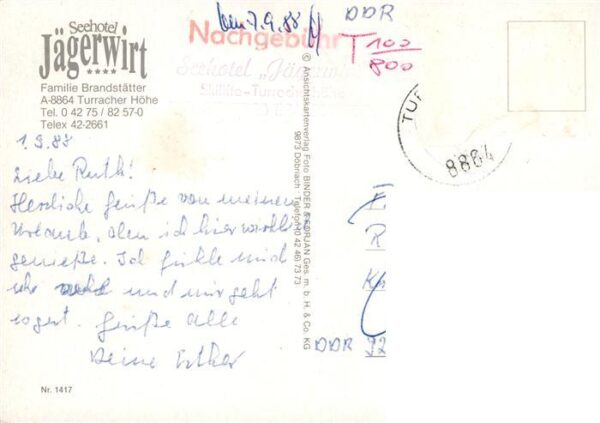 Seehotel
Jägerwirt
★★★★
Familie Brandstätter
A-8864 Turracher Höhe
Tel. 0 42 75 / 82 57-0
Telex 42-2661
1.9.88
Liebe Ruth!
Herzliche Grüße von meinem
Urlaub, den ich hier
genieße. Ich fühle mich
und mir geht
es gut. Grüße alle
Deine Esther
Nr. 1417
7.9.88
DDR
Nachgebühr
T 100
800
Seehotel „Jägerwirt
© Ansichtskartenverlag Foto BINDER & GORJAN Ges. m. b. H. & Co. KG
9873 Döbriach Telefon (0 42 46) 73 73
TUR
8864
E
R
DDR 92